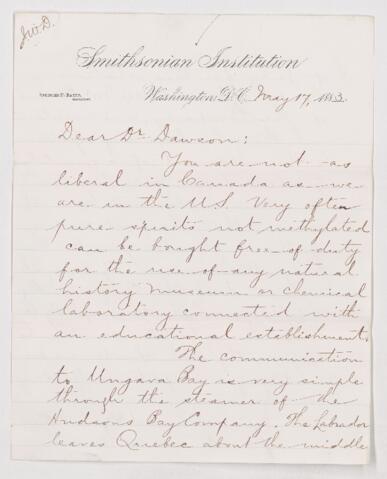 JWD.
Smithsonian Institution
Spencer F. Baird,
Washington, D.C. May 17, 1883.
Dear Dr Dawson:
You are not as
liberal in Canada as we
are in the U.S. Very often
pure spirits not methylated
can be bought free of duty
for the use of any natural
history museum or chemical
laboratory connected with
an educational establishment.
The communication
to Ungava Bay is very simple
through the steamer of the
Hudsons Bay Company. The Labrador
leaves Quebec about the middle